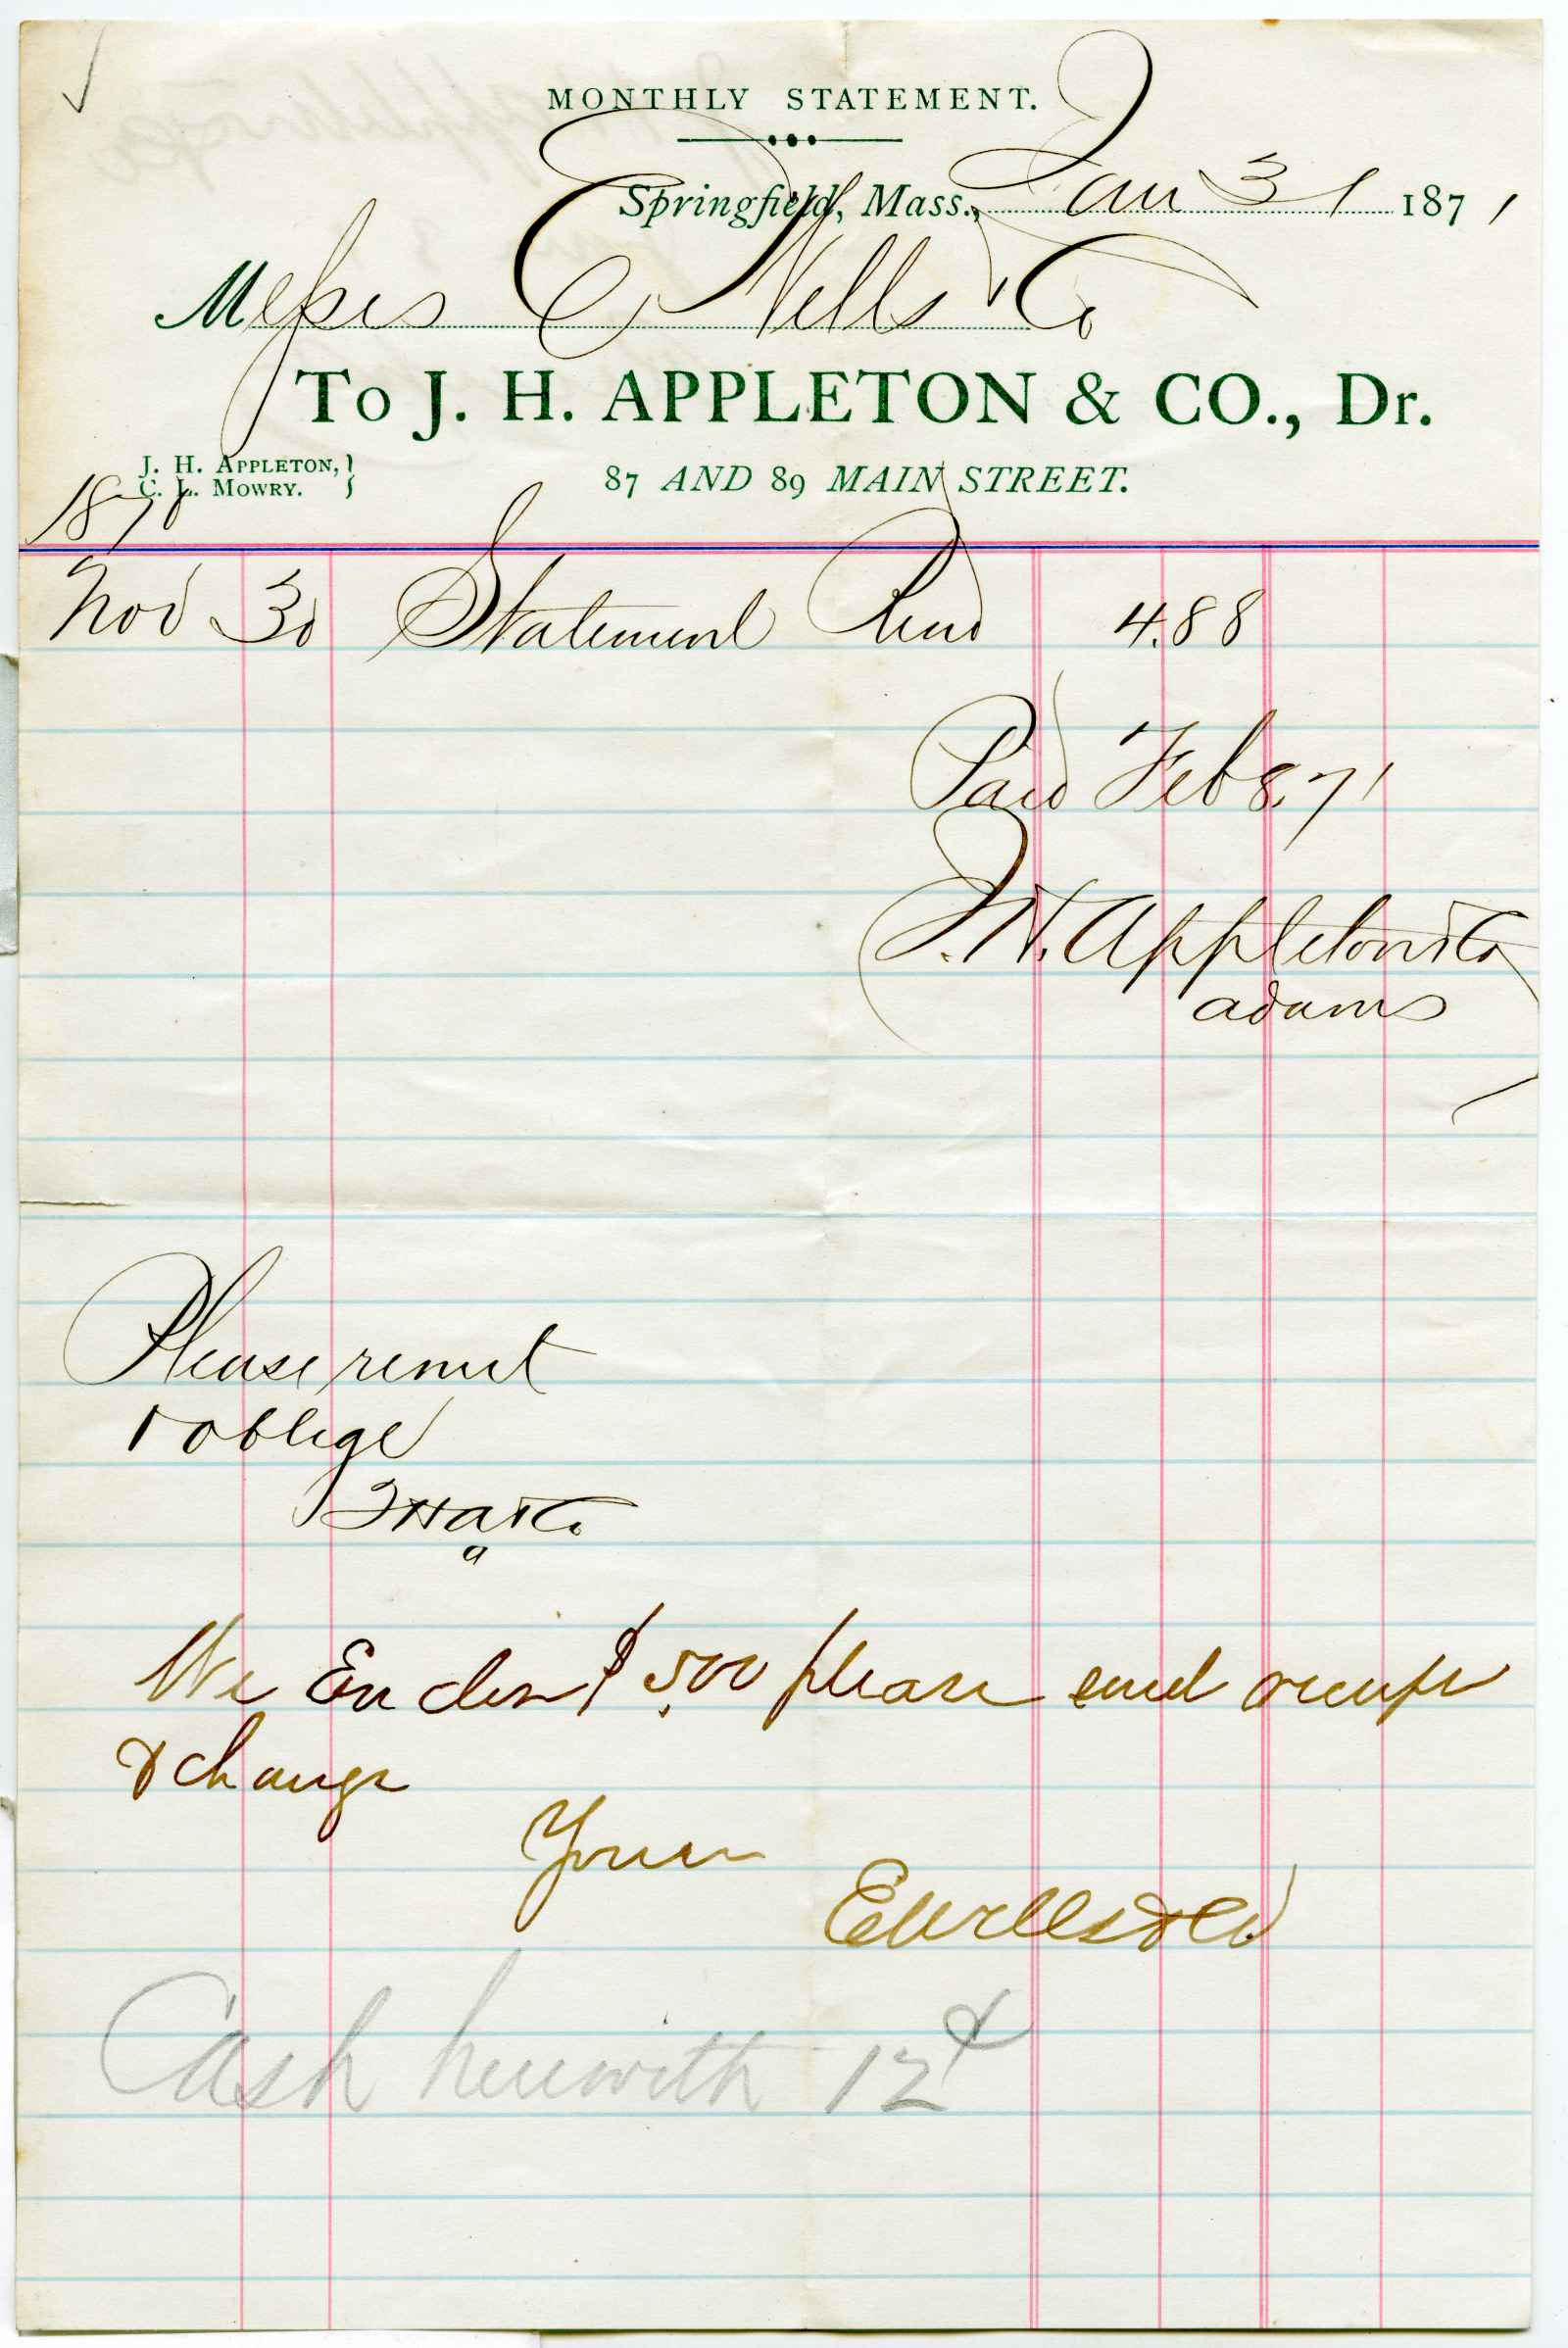 MONTHLY STATEMENT.
Springfield, Mass., Jan 31 1871
Messrs E Wells & Co
To J. H. APPLETON & CO., Dr.
J. H. APPLETON, }
C. L. MOWRY. }
87 AND 89 MAIN STREET.
1870
Nov 30 Statement Rend 4.88
Paid Feb 8. 71
J. H. Appleton & Co
adams
Please remit
& oblige
JHA & Co
a
We Enclose $5.00 please send receipt
& change
Yours
E Wells & Co
Cash herewith 12¢